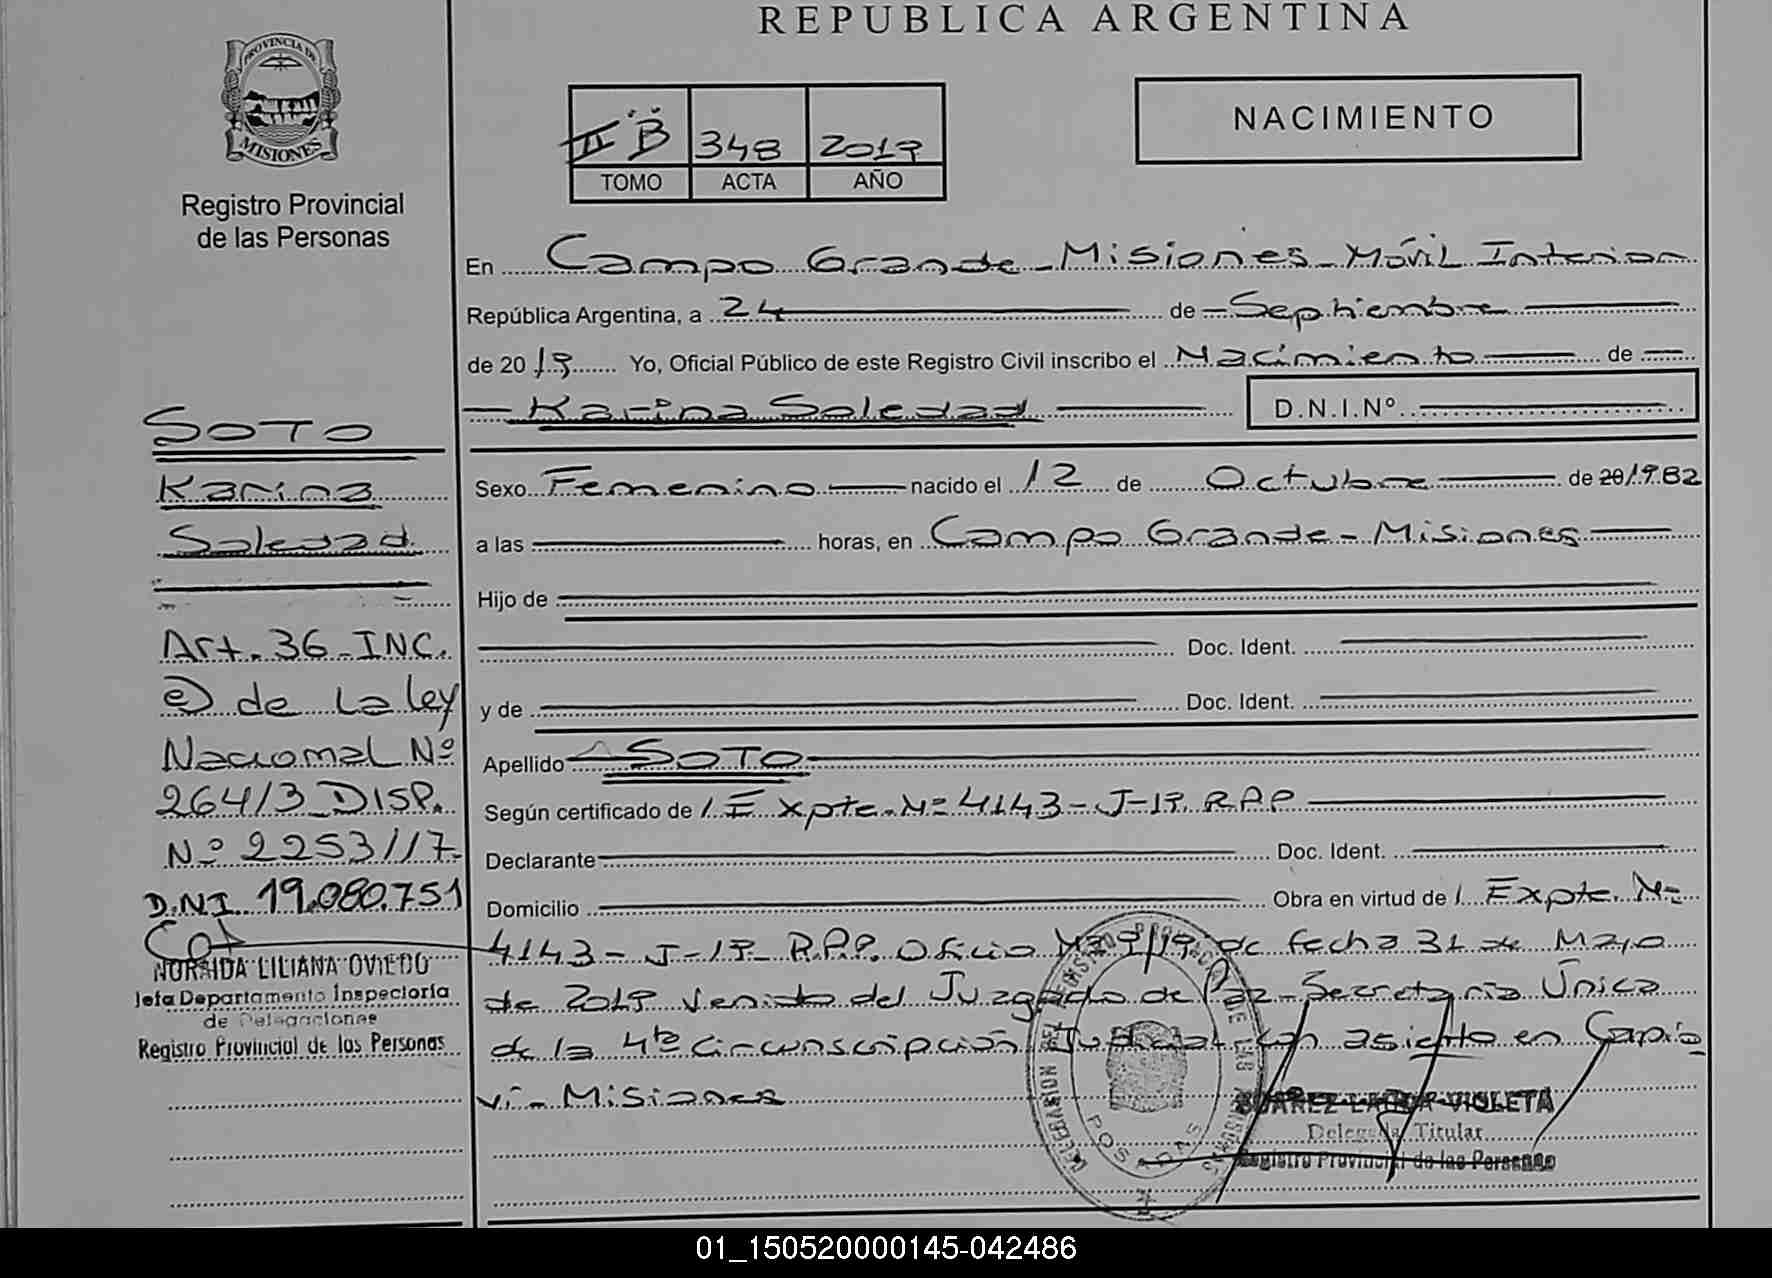 REPUBLICA ARGENTINA
PROVINCIA DE
MISIONES
Registro Provincial
de las Personas
II B 348 2019
TOMO ACTA AÑO
NACIMIENTO
En Campo Grande - Misiones - Móvil Interior
República Argentina, a 24 de Septiembre
de 2019 Yo, Oficial Público de este Registro Civil inscribo el Nacimiento de
Karina Soledad D.N.I.Nº
Sexo Femenino nacido el 12 de Octubre de 20 1982
a las horas, en Campo Grande - Misiones
Hijo de
Doc. Ident.
y de Doc. Ident.
Apellido SOTO
Según certificado de / Expte. Nº 4143 - J-19. R.P.P
Declarante Doc. Ident.
Domicilio Obra en virtud de / Expte. Nº
4143 - J-19 R.P.P. Oficio Nº 9/19 de fecha 31 de Mayo
de 2019 venido del Juzgado de Paz - Secretaria Única
de la 4ta circunscripción Judicial con asiento en Capio
vi - Misiones
SOTO
Karina
Soledad
Art. 36 - INC.
e) de la ley
Nacional Nº
264/3 DISP.
Nº 2253//7-
D.N.I. 19.080.751
NORAIDA LILIANA OVIEDO
Jefa Departamento Inspectoría
de Delegaciones
Registro Provincial de las Personas
DELEGACION DEL REGISTRO PROVINCIAL DE LAS PERSONAS
POSADAS
SUAREZ VIOLETA
Delegada Titular
Registro Provincial de las Personas
01_150520000145-042486